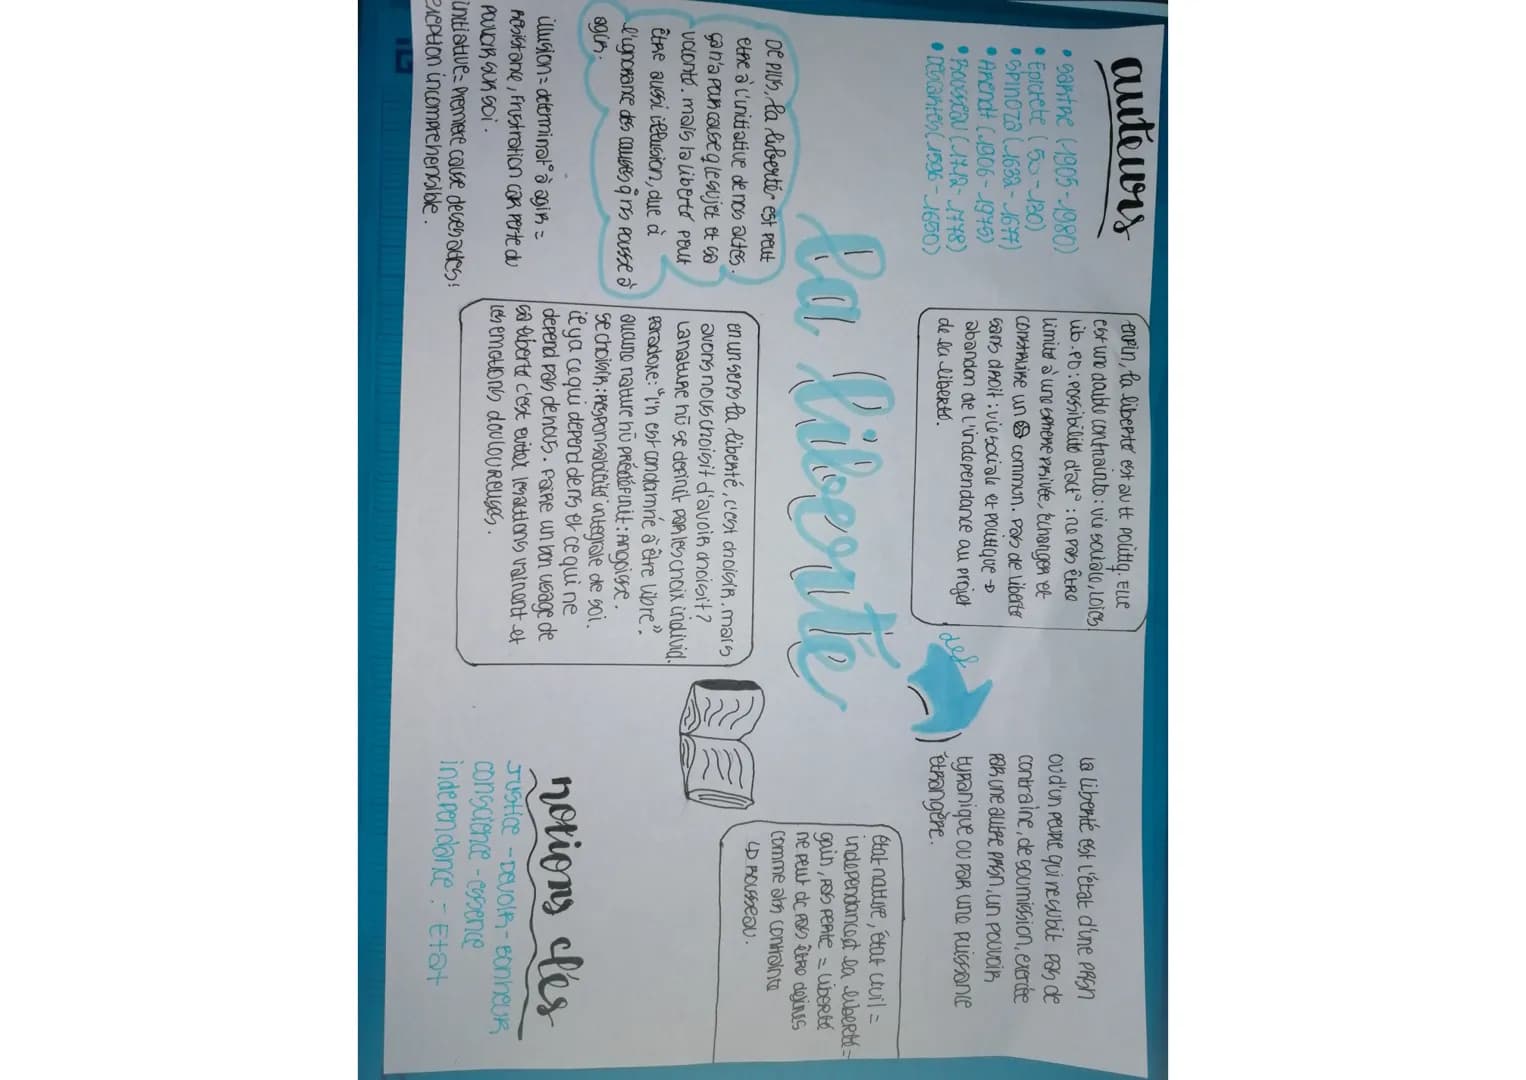 auteurs
• Sartre (1905-1980)
• Epictete (50-130)
• Spinoza (1632-1677)
• Arendt (1906-1975)
• Rousseau (1712-1778)
• Descartes (1596-1650)
enfin, la liberté est avtt politiq. Elle
est une double contrainte : vie sociale, loics.
lib. PO : possibilité d'act° : ne pas être
limité à une sphere privée, échanger et
construire un commun. Pas de liberté
sans droit : vie sociale et politique →
abandon de l'independance au projet
de la liberté.
def
la liberté est l'état d'une prsn
ou d'un peuple qui ne subit pas de
contraine, de soumission, exercée
par une autre prsn, un pouvoir
tyranique ou par une puissance
étrangère.
la liberté
De plus, la liberté est peut
etre à l'initiative de nos actes.
ça n'a pour cause q le sujet et sa
volonté. mais la liberté peut
être aussi illusion, due à
l'ignorance des causes q ns pousse à
agir.
illusion = déterminat° à agir =
résistance, frustration car perte du
pouvoir sur soi.
initiative = Premiere cause de ses actes :
exception incomprehensible.
en un sens la liberté, c'est choisir. mais
avons nous choisit d'avoir choisit ?
La nature hū se definit par les choix individ.
Paradoxe : "l'h est condamné à être libre".
aucune nature hū prédéfinit : Angoisse.
se choisir : responsabilité integrale de soi.
il ya ce qui depend de ns et ce qui ne
depend pas de nous. Faire un bon usage de
sa liberté c'est eviter les actions vainent et
les emotions douloureuses.
état nature, état civil =
independance et la liberté =
gain, pas perte = liberté
ne peut dc pas être definis
comme abs contrainte
↳ Rousseau.
notions clés
Justice - Devoir - Bonheur
conscience - essence
independance - Etat